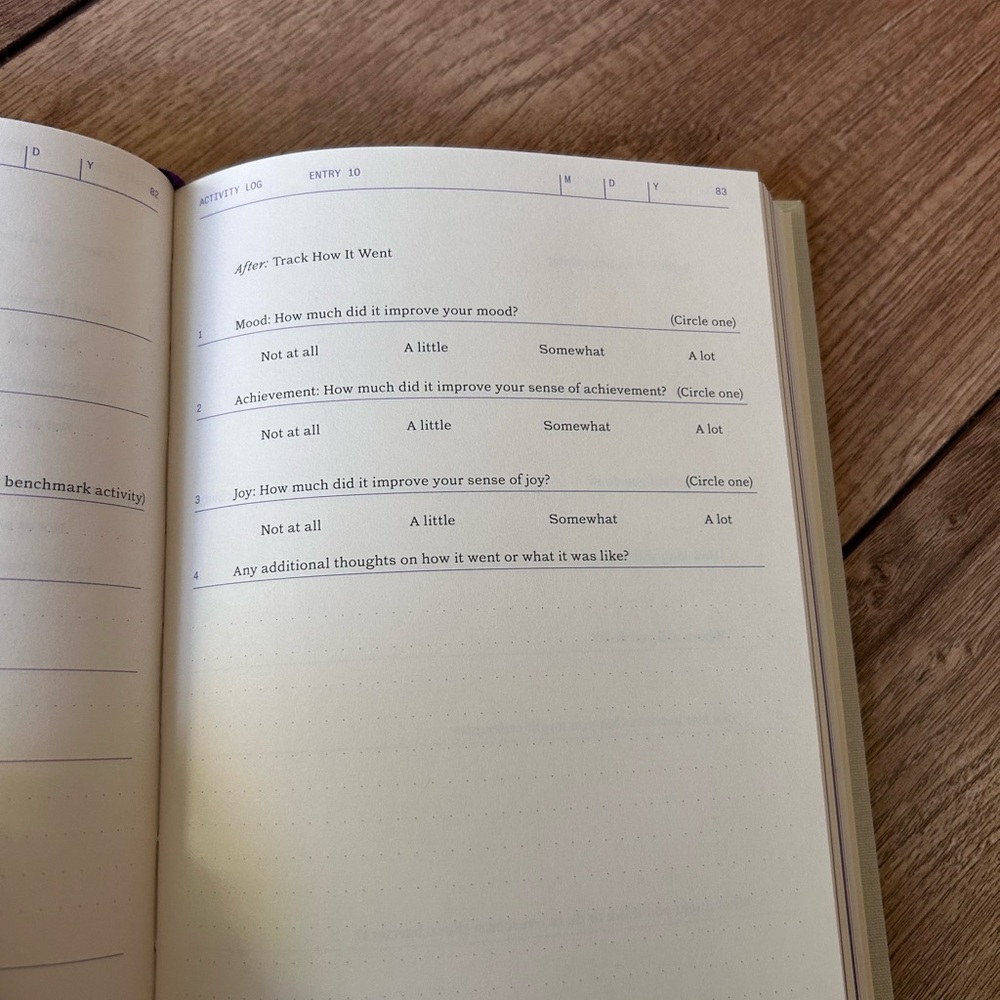 D Y 82
benchmark activity)
ACTIVITY LOG ENTRY 10 M D Y 83
After: Track How It Went
1 Mood: How much did it improve your mood? (Circle one)
Not at all A little Somewhat A lot
2 Achievement: How much did it improve your sense of achievement? (Circle one)
Not at all A little Somewhat A lot
3 Joy: How much did it improve your sense of joy? (Circle one)
Not at all A little Somewhat A lot
4 Any additional thoughts on how it went or what it was like?